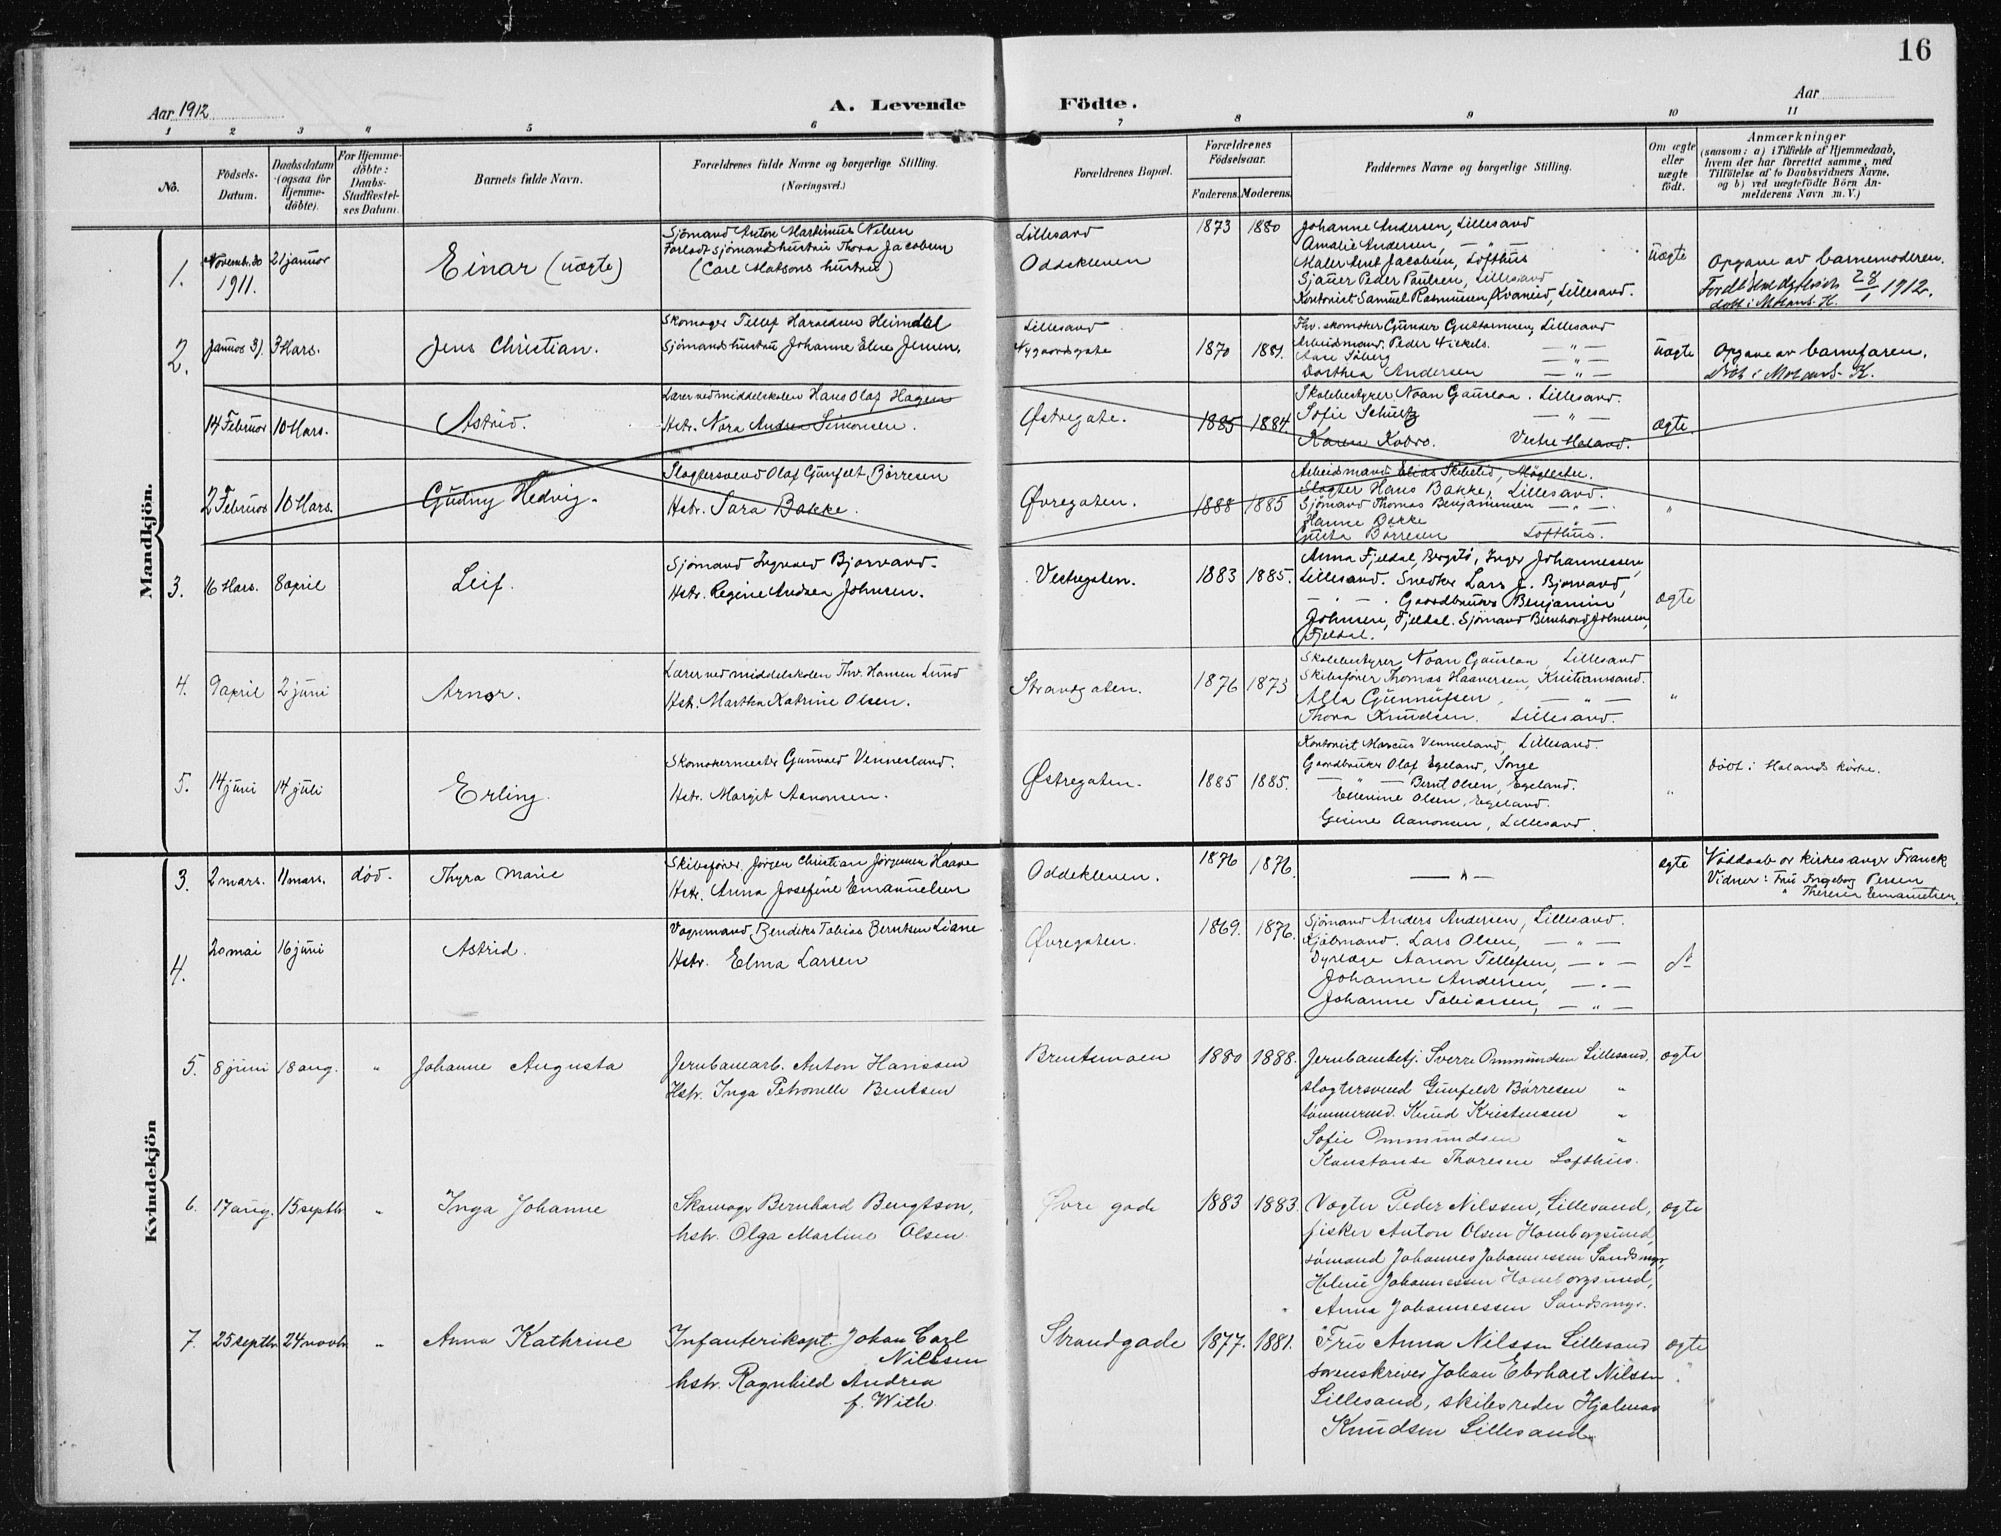 16
Aar 1912
A. Levende Födte.
Aar
1 2 3 4 5 6 7 8 9 10 11
No.
Födsels-Datum.
Daabsdatum (ogsaa for Hjemme-döbte).
For Hjemme-döbte: Daabs-Stadfæstel-ses Datum.
Barnets fulde Navn.
Forældrenes fulde Navne og borgerlige Stilling. (Næringsvei.)
Forældrenes Bopæl.
Forældrenes Födselsaar.
Faderens. Moderens.
Faddernes Navne og borgerlige Stilling.
Om ægte eller uægte födt.
Anmærkninger
(saasom: a) i Tilfælde af Hjemmedaab, hvem der har forrettet samme, med Tilföielse af to Daabsvidners Navne, og b) ved uægtefödte Börn An-melderens Navn m. V.)
Mandkjön.
1. Novemb. 30 1911. 21 januar Einar (uægte)
Sjömand Anton Martinius Nilsen
Forladt sjömandshustru Thora Jacobsen
(Carl Matsons hustru)
Lillesand
Oddekleven
1873 1880
Johanne Andersen, Lillesand
Amalie Andersen, — " —
Maler Bent Jacobsen, Lofthus
Sjauer Peder Paulsen, Lillesand
Kontorist Samuel Rasmussen Kvanvid, Lillesand.
uægte
Opgave av barnemoderen.
28/1 1912.
2. Januar 31. 3 Mars. Jens Christian.
Skomager Tellef Haraldsen Heimdal
Sjömandshustru Johanne Elise Jensen.
Lillesand
Nygaardsgate
1870 1881.
Fhv. skomaker Gunder Guttormsen, Lillesand
Arbeidmand. Peder Nickels. — " —
Aase Söberg — " —
Dorthea Andersen — " —
uægte
Opgave av barnefaren.
14 Februar 10 Mars. Astrid.
Lærer ved middelskolen Hans Olaf Hagen
Hstr. Nora Andrea Simonsen.
Østregate.
1885 1884.
Skolebestyrer Noan Gauslaa. Lillesand.
Sofie Schultz — " —
Karen Kobro. Vestre Moland.
ægte.
2 Februar 10 Mars. Gudny Hedvig.
Slagtersvend Olaf Gunfelt Børresen
Hstr. Sara Bakke.
Øvregaten.
1888 1885
Arbeidmand Elias Skibelid, Møglestu.
Slagter Hans Bakke, Lillesand.
Sjömand Thomas Benjaminsen — " —
Hanne Bakke — " —
Gusta Børresen Lofthus.
"
3. 16 Mars. 8 april Leif.
Sjömand Ingvald Bjorvand.
Hstr. Regine Andrea Johnsen.
Vestregaten.
1883 1885.
Anna Fjeldal, Bergstø, Inger Johannessen,
Lillesand. Snedker Lars J. Bjorvand,
— " — . Gaardbruker Benjamin
Johnsen, Fjeldal. Sjömand Bernhard Johnsen,
Fjeldal.
ægte
4. 9 april 2 juni Arnor.
Lærer ved middelskolen Thv. Hansen Lund
Hstr. Martha Katrine Olsen.
Strandgaten.
1876 1873
Skolebestyrer Noan Gauslaa, Lillesand
Skibsfører Thomas Haaversen, Kristianssand.
Alla Gunnufsen, — " —
Thora Knudsen. Lillesand.
"
5. 14 juni 14 juli Erling.
Skomakermester Gunvald Vennesland.
Hstr. Margit Aanonsen.
Østregaten.
1885 1885.
Kontorist Marcus Vennesland, Lillesand.
Gaardbruker Olaf Egeland, Songe
— " — Bernt Olsen, Egeland.
Ellevine Olsen, Egeland.
Gesine Aanonsen, Lillesand.
"
Døbt i Molands kirke.
Kvindekjön
3. 2 mars. 11 mars. død. Thyra Marie
Skibsfører Jørgen Christian Jørgensen Haave
Hstr. Anna Josefine Emanuelsen
Oddekleven.
1876 1876.
— " —
ægte
Nøddaab av kirkesanger Franck
Vidner: Fru Ingeborg Persen
" Therese Emanuelsen.
4. 20 mai 16 juni Astrid.
Vognmand Bendiks Tobias Berntsen Liane
Hstr. Elma Larsen
Øvregaten.
1869. 1876.
Sjömand Anders Andersen, Lillesand.
Kjøbmand. Lars Olsen, — " —
Dyrlæge Aanon Tellefsen, — " —
Johanne Andersen, — " —
Johanne Tobiassen, — " —
5. 8 juni 18 aug. " Johanne Augusta
Jernbanearb. Anton Hanssen
Hstr. Inga Petronelle Bentsen
Brentemoen
1880 1888.
Jernbanebetj. Sverre Ommundsen Lillesand.
slagtersvend Gunfeldt Børresen "
tømmermd. Knud Kristensen "
Sofie Ommundsen "
Konstanse Thoresen Lofthus.
ægte
6. 17 aug. 15 septbr. " Inga Johanne
Skomagr Bernhard Bengtson,
hstr. Olga Martine Olsen.
Øvre gade
1883 1883.
Vogter Peder Nilssen, Lillesand,
fisker Anton Olsen Homborgsund,
sømand Johannes Johannessen Sandsmyr,
Helene Johannessen Homborgsund,
Anna Johannessen Sandsmyr.
ægte
7. 25 septbr. 24 novbr. " Anna Kathrine
Infanterikapt. Johan Carl
Nilssen
hstr. Ragnhild Andrea
f. With.
Strandgade
1877. 1881.
Fru Anna Nilssen Lillesand
sorenskriver Johan Eberhart Nilssen
Lillesand, skibsreder Hjalmar
Knudsen Lillesand.
ægte